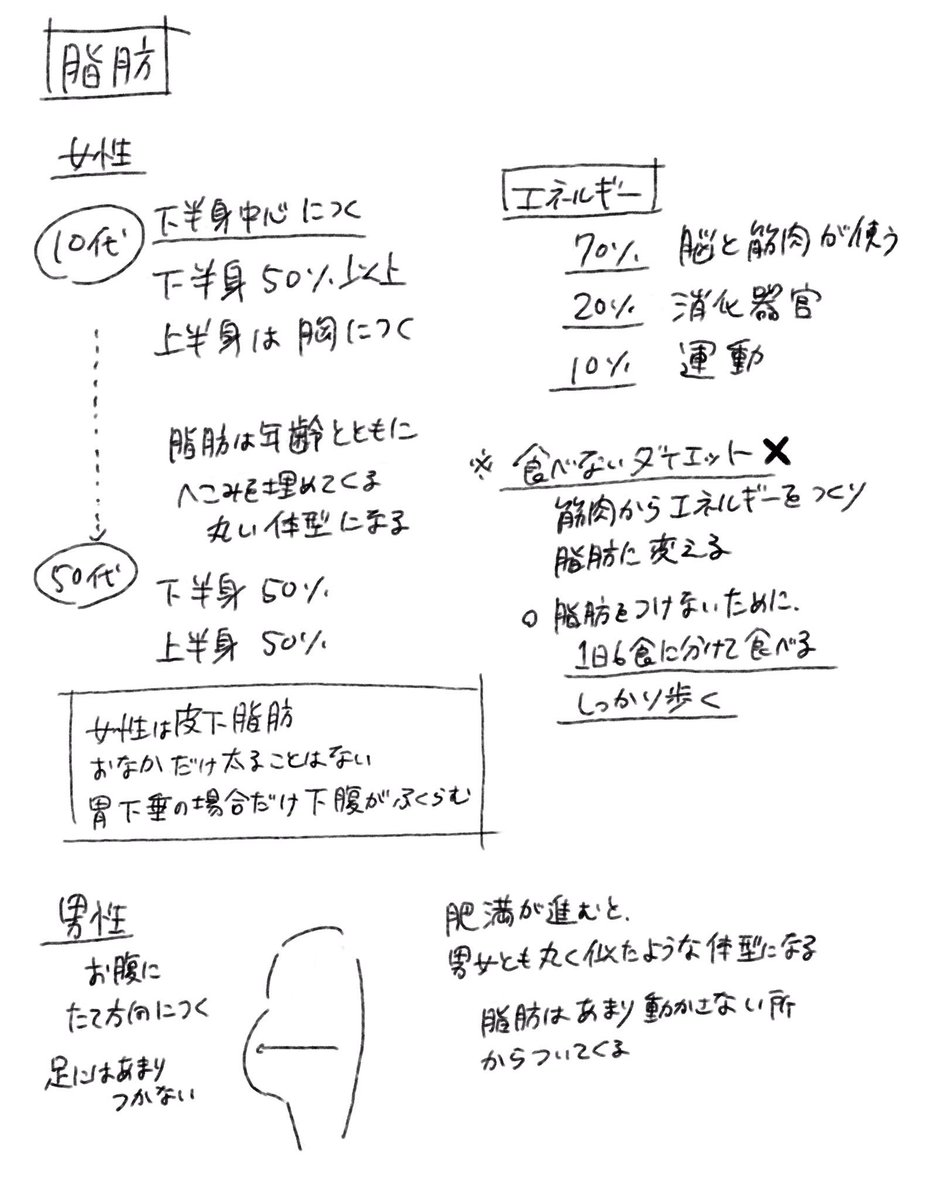 脂肪
女性
10代
下半身中心につく
下半身 50%以上
上半身は 胸につく
脂肪は年齢とともに
へこみを埋めてくる
丸い体型になる
50代
下半身 50%
上半身 50%
女性は皮下脂肪
おなかだけ太ることはない
胃下垂の場合だけ下腹がふくらむ
エネルギー
70% 脳と筋肉が使う
20% 消化器官
10% 運動
※ 食べないダイエット ×
筋肉からエネルギーをつくり
脂肪に変える
○ 脂肪をつけないために、
1日6食に分けて食べる
しっかり歩く
男性
お腹に
たて方向につく
足にはあまり
つかない
肥満が進むと、
男女とも丸く似たような体型になる
脂肪はあまり動かさない所
からついてくる